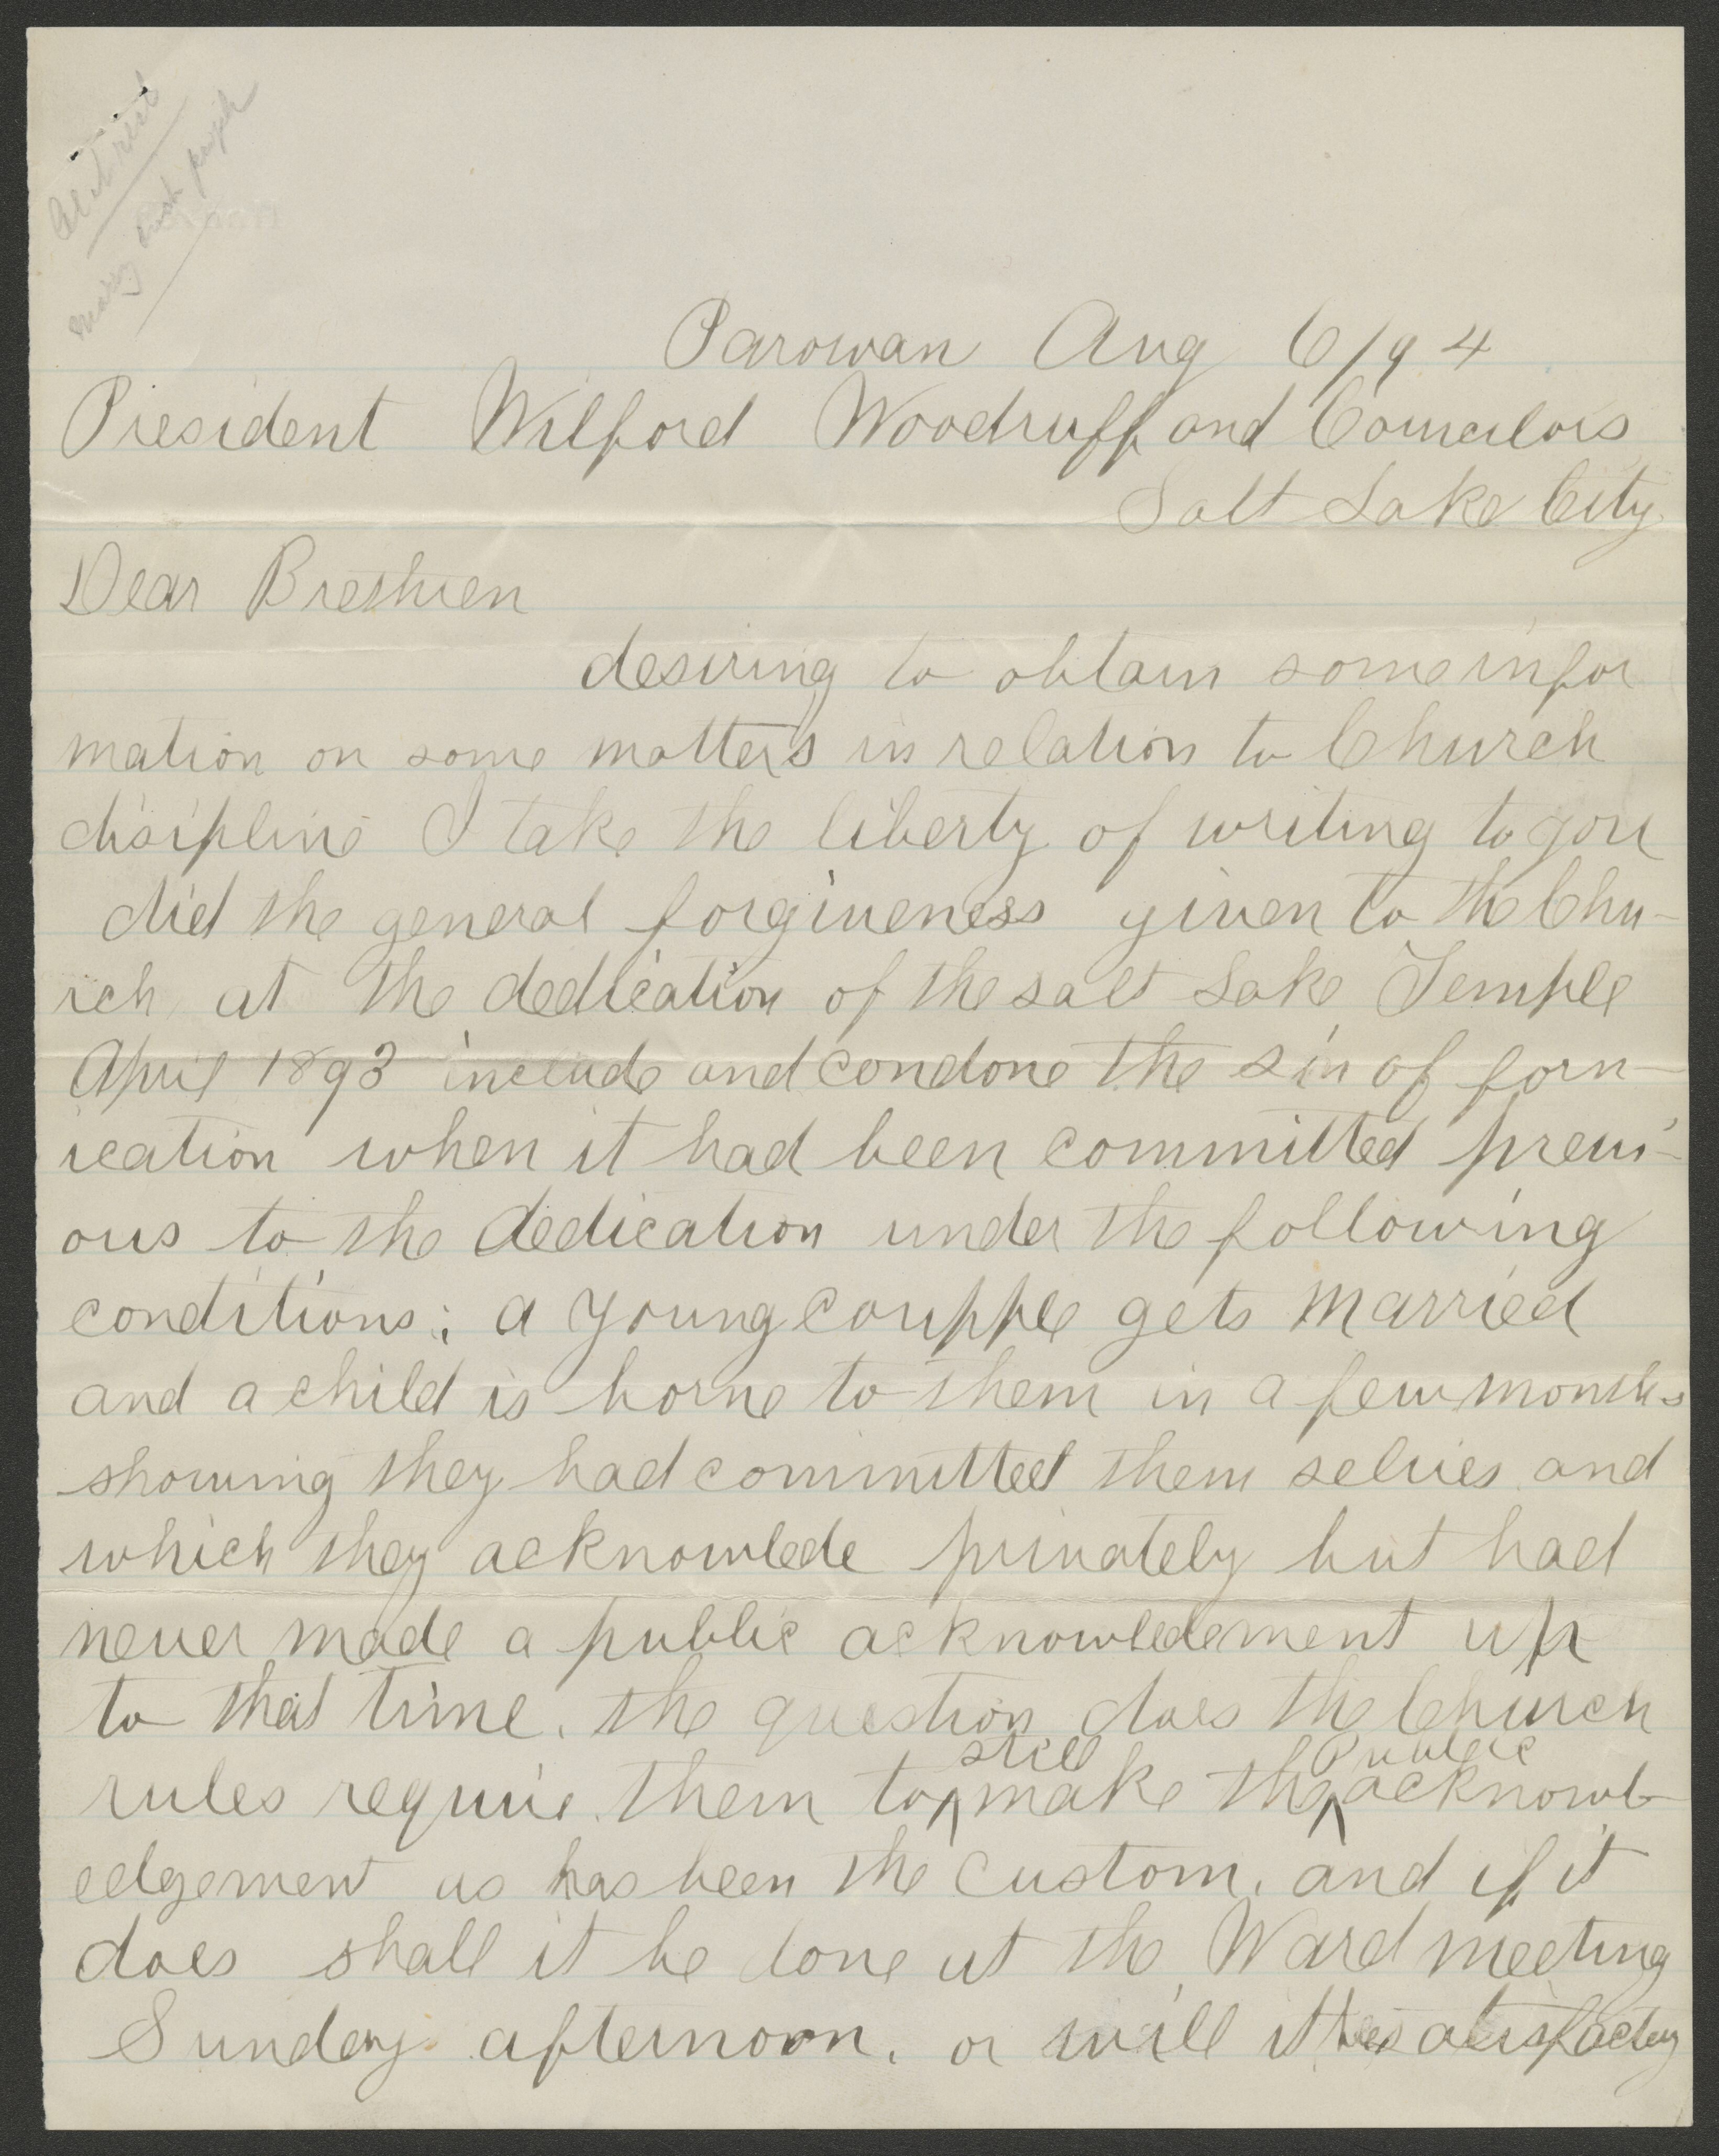 Parowan Aug 6/94
President Wilford Woodruff and Councilors
Salt Lake City
Dear Brethren
desiring to obtain some infor
mation on some matters in relation to Church
disipline I take the liberty of writing to you
did the general forgiveness given to the Chu-
rch at the dedication of the salt Lake Temple
April 1893 include and condone the sin of forn-
ication when it had been committed previ-
ous to the dedication under the following
conditions; a young coupple gets married
and a child is borne to them in a few months
showing they had committed them selves and
which they acknowlede privately but had
never made a public acknowledement up
to that time. the question does the Church
rules require them to ^still make the ^Public acknowl-
edgement as has been the custom. and if it
does shall it be done at the Ward meeting
Sunday afternoon. or will it be satisfactory